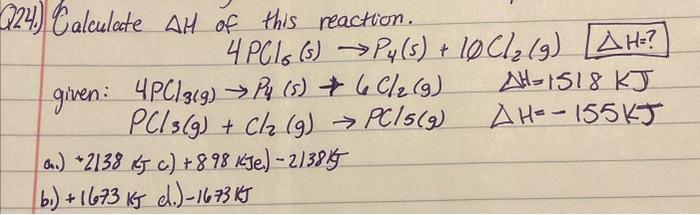 Q24.) Calculate ΔH of this reaction.
4PCl5 (s) → P4(s) + 10Cl2(g) ΔH=?
given: 4PCl3(g) → P4 (s) + 6 Cl2(g) ΔH=1518 KJ
PCl3(g) + Cl2 (g) → PCl5(g) ΔH=-155KJ
a.) +2138 KJ c.) +898 KJ e.) -2138 KJ
b.) +1673 KJ d.) -1673 KJ